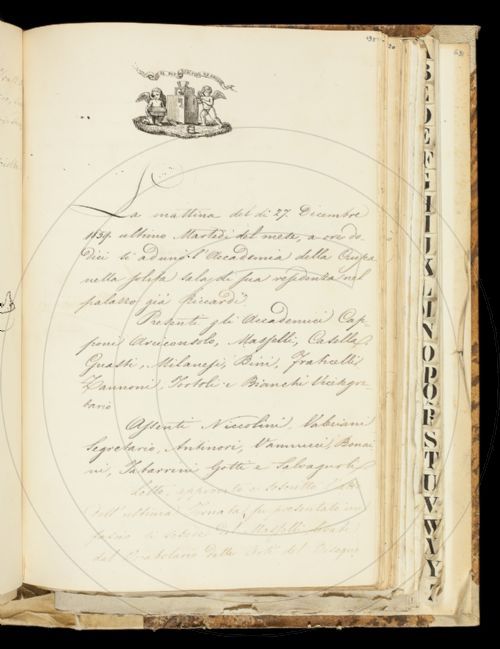 La mattina del dì 27. Dicembre
1859. ultimo Martedì del mese, a ore do
dici si adunò l'Accademia della Crusca
nella solita sala di sua residenza nel
palazzo già Riccardi.
Presenti gli Accademici Cap-
poni Arciconsolo, Masselli, Casella,
Guasti, Milanesi, Bini, Fraticelli
Zannoni, Tortoli e Bianchi Vicesegre-
tario
Assenti Niccolini, Valeriani
Segretario, Antinori, Vannucci, Bonai
ni, Tabarrini Gotti e Salvagnoli.
Letto, approvato e
dell'ultima fu presentato un
di del Masselli
del Vocabolario delle Arti del Disegno
A
B
E
D
E
F
G
H
I
J
K
L
N
O
P
O
R
S
T
U
V
W